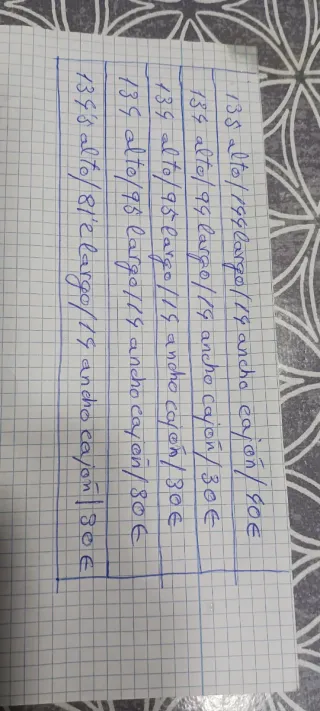 135 alto/199 largo/19 ancho cajoñ/40€
139 alto/99 largo/19 ancho cajoñ/30€
139 alto/95 largo/19 ancho cajoñ/30€
139 alto/95 largo/19 ancho cajoñ/30€
139'5 alto/81'2 largo/19 ancho cajoñ/30€